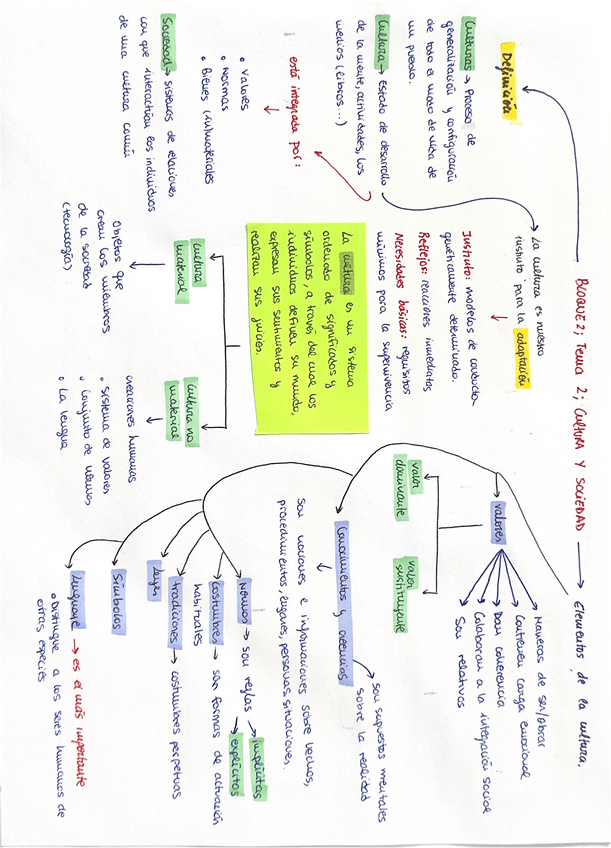 BLOQUE 2; Tema 2; CULTURA Y SOCIEDAD → Elementos de la cultura.
Definición
Culturas → Proceso de
generalización y configuración
de todo el modo de vida de
un pueblo.
Cultura → estado de desarrollo
de la mente, actividades, los
medios (libros...)
está integrada por:
• Valores
• Normas
• Bienes (in)materiales
Sociedad → sistemas de relaciones
con que interactúan los individuos
de una cultura común
La cultura es nuestro
instinto para la adaptación
Instinto: modelos de conducta
genéticamente determinado.
Reflejos: reacciones inmediatas
Necesidades básicas: requisitos
mínimos para la supervivencia
La cultura es un sistema
ordenado de significados y
símbolos, a través del cual los
individuos definen su mundo,
expresan sus sentimientos y
realizan sus juicios.
cultura
material
Objetos que
crean los miembros
de la sociedad
(tecnología)
cultura no
material
creaciones humanas
• sistema de valores
• conjunto de normas
• La lengua
valores
Maneras de ser/obrar
Contienen carga emocional
Dan coherencia
Colaboran a la integración social
Son relativos
valor
dominante
valor
sustituyente
Conocimientos y creencias
son supuestos mentales
sobre la realidad
Son nociones e informaciones sobre hechos,
procedimientos, lugares, personas, situaciones.
Normas → son reglas
implícitas
explícitas
costumbres → son formas de actuación
habituales
tradiciones → costumbres perpetuas
Leyes
Símbolos
Lenguaje → es el más importante
• Distingue a los seres humanos de
otras especies